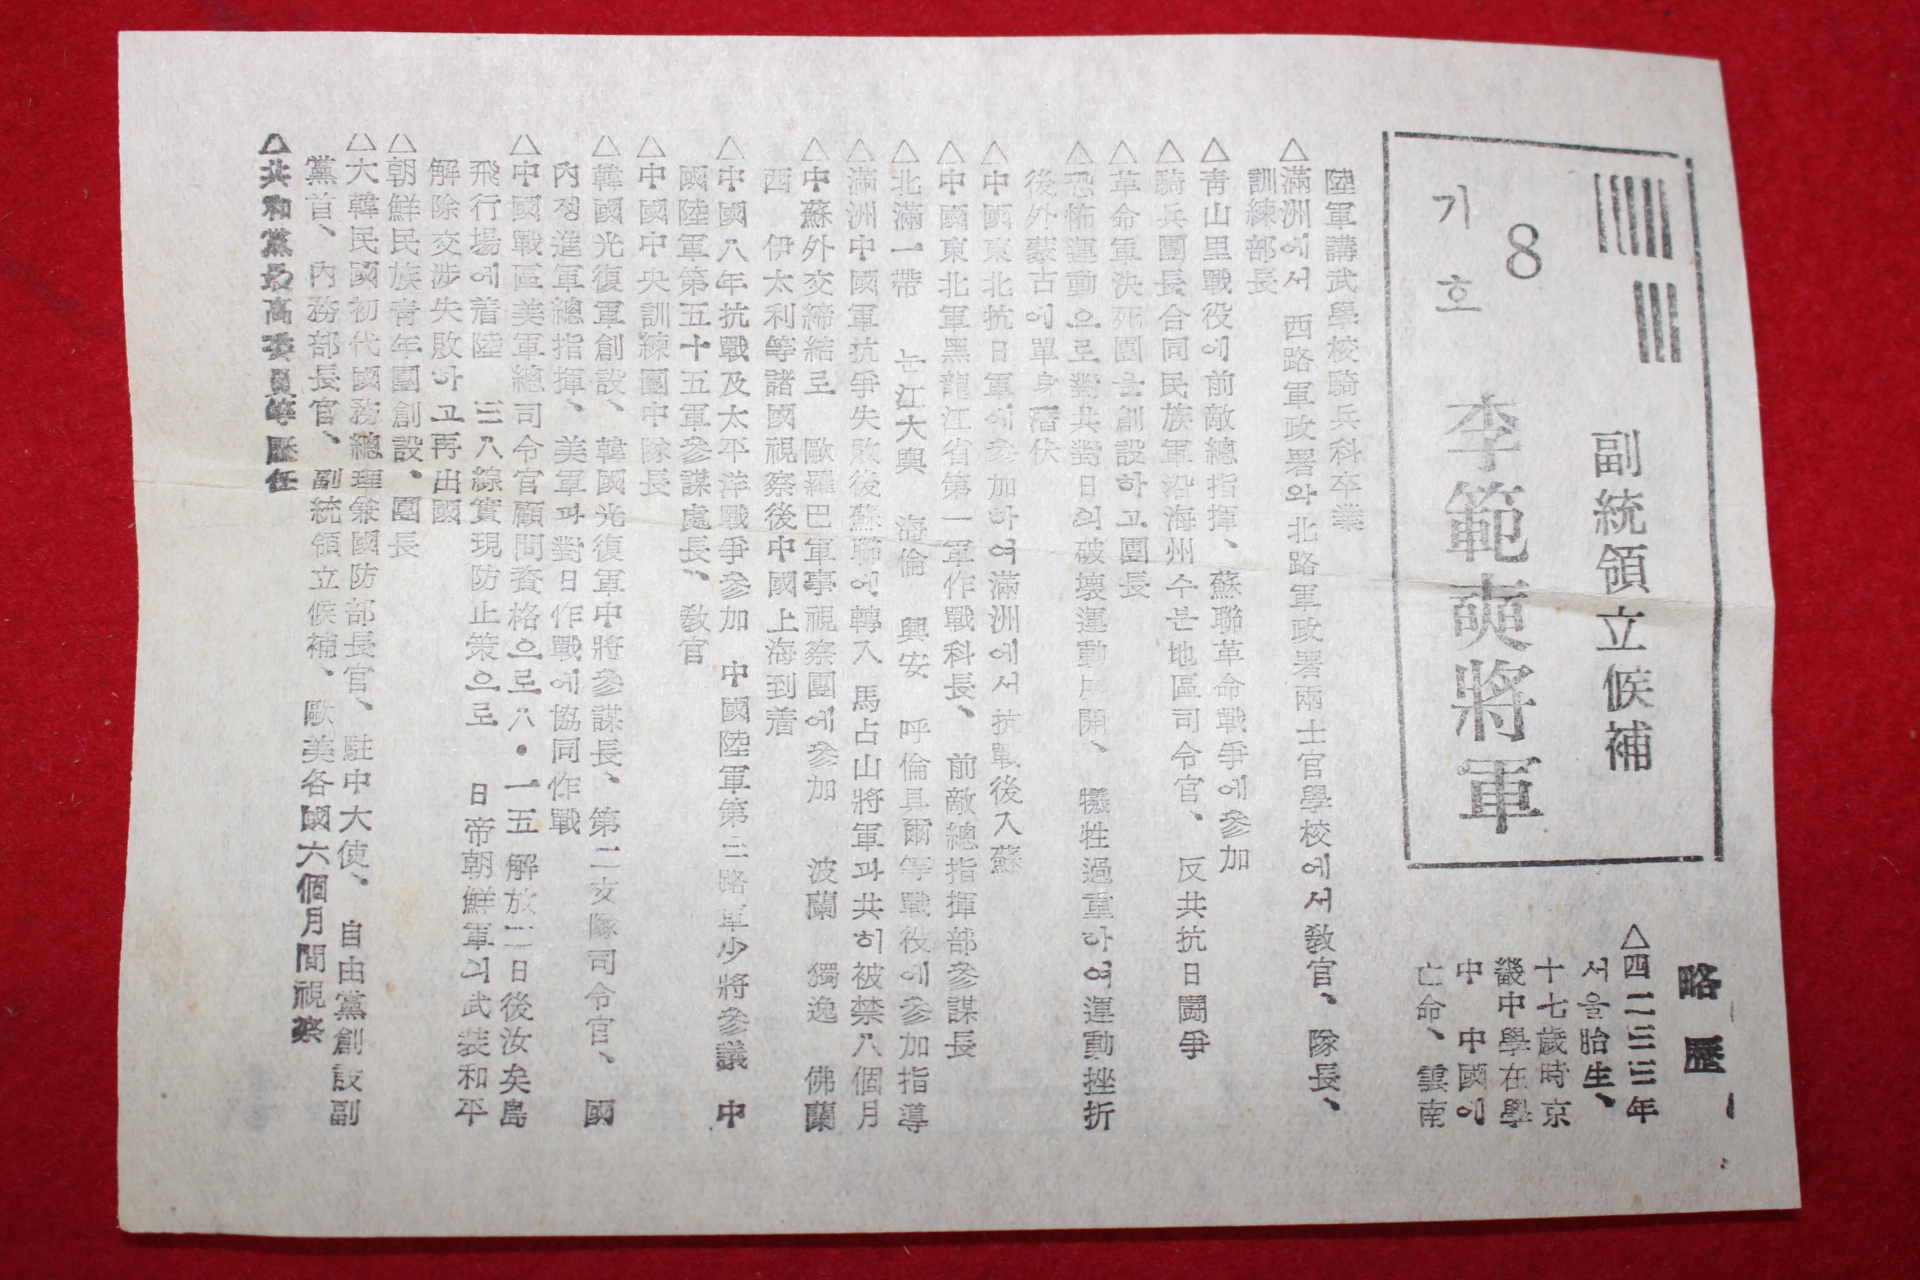 副統領立候補
기호
8
李範奭將軍
略歷
△四二三三年
서울胎生、
十七歲時京
畿中學在學
中 中國에
亡命、雲南
陸軍講武學校騎兵科卒業
△滿洲에서 西路軍政署와北路軍政署兩士官學校에서敎官、隊長、
訓練部長
△靑山里戰役에前敵總指揮、蘇聯革命戰爭에參加
△騎兵團長合同民族軍沿海州수분地區司令官、反共抗日鬪爭
△革命軍決死團을創設하고團長
△恐怖運動으로對共對日의破壞運動展開、犧牲過重하여運動挫折
後外蒙古에單身潛伏
△中國東北抗日軍에參加하여滿洲에서抗戰後入蘇
△中國東北軍黑龍江省第一軍作戰科長、前敵總指揮部參謀長
△北滿一帶 눈江大興 海倫 興安 呼倫具爾等戰役에參加指導
△滿洲中國軍抗爭失敗後蘇聯에轉入 馬占山將軍과共히被禁八個月
△中蘇外交締結로 歐羅巴軍事視察團에參加 波蘭 獨逸 佛蘭
西 伊太利等諸國視察後中國上海到着
△中國八年抗戰及太平洋戰爭參加 中國陸軍第三路軍少將參議 中
國陸軍第五十五軍參謀處長、敎官
△中國中央訓練團中隊長
△韓國光復軍創設、韓國光復軍中將參謀長、第二支隊司令官、國
內정進軍總指揮、美軍과對日作戰에協同作戰
△中國戰區美軍總司令官顧問資格으로八·一五解放三日後汝矣島
飛行場에着陸 三八線實現防止策으로 日帝朝鮮軍의武裝和平
解除交涉失敗하고再出國
△朝鮮民族靑年團創設、團長
△大韓民國初代國務總理兼國防部長官、駐中大使、自由黨創設副
黨首、內務部長官、副統領立候補、歐美各國六個月間視察
△共和黨最高委員等歷任